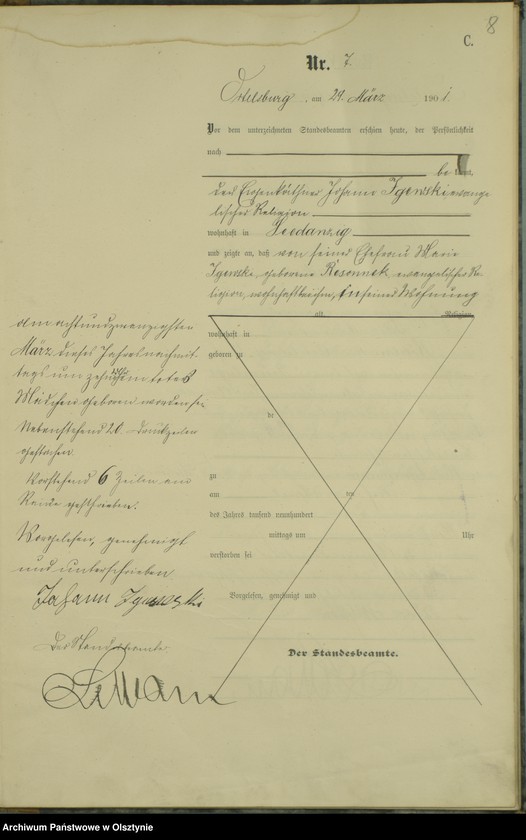 8
C.
Nr. 7.
Ortelsburg, am 29. März 1901.
Vor dem unterzeichneten Standesbeamten erschien heute, der Persönlichkeit
nach
be kannt,
der Eigenkäthner Johann Igewski evange
lischer Religion
wohnhaft in Seedanzig
und zeigte an, daß von seiner Ehefrau Marie
Igewski geborene Kosonnek evangelischer Re
ligion, wohnhaft bei ihm, in seiner Wohnung
alt, Religion,
wohnhaft in
geboren zu
de
zu
am ten
des Jahres tausend neunhundert
mittags um Uhr
verstorben sei
Vorgelesen, genehmigt und
Der Standesbeamte.
am achtundzwanzigsten
März dieses Jahres nachmit
tags um zehn Uhr ein totes
Mädchen geboren worden sei
Nebenstehend 20 Druckzeilen
gestrichen.
Vorstehend 6 Zeilen am
Rande
Vorgelesen, genehmigt
und unterschrieben
Johann Igewski
Der Standesbeamte
Archiwum Państwowe w Olsztynie